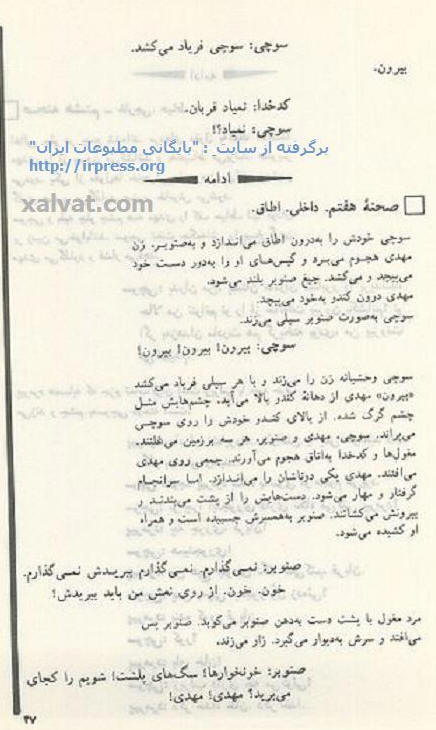 سوچی: سوچی فریاد می‌کشد.
بیرون.
کدخدا: نمیاد قربان.
سوچی: نمیاد؟!
برگرفته از سایت : "بایگانی مطبوعات ایران"
http://irpress.org
ادامه
xalvat.com
صحنهٔ هفتم. داخلی. اطاق.
سوچی خودش را به‌درون اطاق می‌اندازد و به‌صنوبر، زن
مهدی هجوم می‌برد و گیس‌های او را به‌دور دست خود
می‌پیچد و می‌کشد. جیغ صنوبر بلند می‌شود.
مهدی درون کندو به‌خود می‌پیچد.
سوچی به‌صورت صنوبر سیلی می‌زند.
سوچی: بیرون! بیرون! بیرون!
سوچی وحشیانه زن را می‌زند و با هر سیلی فریاد می‌کشد
«بیرون» مهدی از دهانهٔ کندو بالا می‌آید، چشمهایش مثل
چشم گرگ شده. از بالای کندو خودش را روی سوچی
می‌پراند. سوچی، مهدی و صنوبر، هر سه برزمین می‌غلتند.
مغول‌ها و کدخدا به‌اتاق هجوم می‌آورند. جمعی روی مهدی
می‌افتند. مهدی یکی دوتاشان را می‌اندازد. اما سرانجام
گرفتار و مهار می‌شود. دست‌هایش را از پشت می‌بندند و
بیرونش می‌کشانند. صنوبر به‌همسرش چسبیده است و همراه
او کشیده می‌شود.
صنوبر: نمی‌گذارم. نمی‌گذارم ببریدش نمی‌گذارم.
خون. خون. از روی نعش من باید ببریدش!
مرد مغول با پشت دست به‌دهن صنوبر می‌کوبد. صنوبر پس
می‌افتد و سرش به‌دیوار می‌گیرد. زار می‌زند.
صنوبر: خونخوارها! سگ‌های پلشت! شویم را کجای
می‌برید؟ مهدی! مهدی!
۴۷